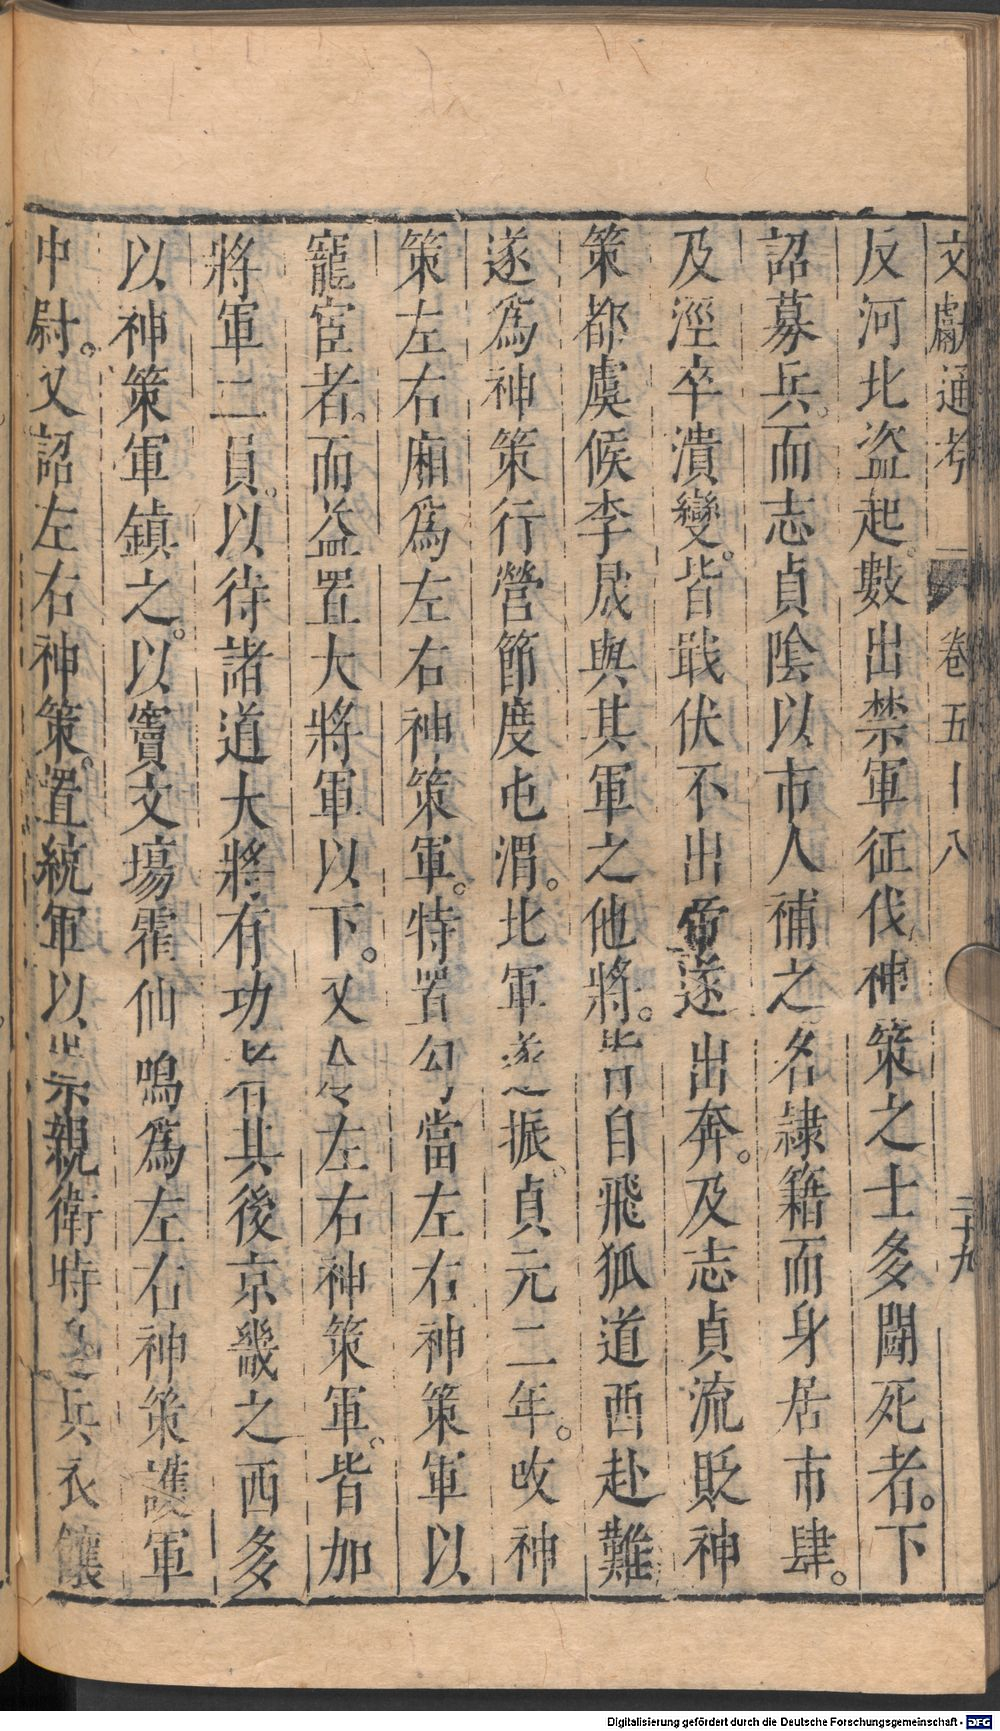 文獻通考 卷五十八 二十九
反河北盜起。數出禁軍征伐神策之士多鬭死者。下
詔募兵。而志貞陰以市人補之名隷籍而身居市肆。
及涇卒潰變。皆戢伏不出帝遂出奔。及志貞流貶神
策都虞候李晟與其軍之他將。皆自飛狐道西赴難
遂爲神策行營節度屯渭。北軍遂振貞元二年。改神
策左右廂爲左右神策軍。特置勾當左右神策軍以
寵宦者。而益置大將軍以下。又令左右神策軍。皆加
將軍二員。以待諸道大將有功者其後京畿之西多
以神策軍鎮之。以竇文塲霍仙鳴爲左右神策護軍
中尉。又詔左右神策。置統軍以崇親衛時邊兵衣饟
Digitalisierung gefördert durch die Deutsche Forschungsgemeinschaft - DFG